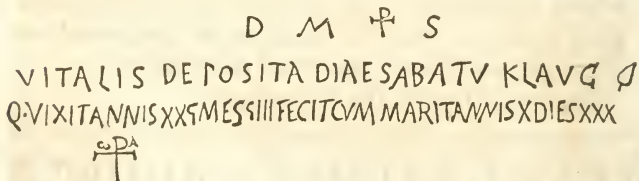 D M ⳨ S
VITALIS DEPOSITA DIAE SABATV KL AVG
Q·VIXIT ANNIS XX MES III FECIT CVM MARIT ANNIS X DIES XXX
ω A